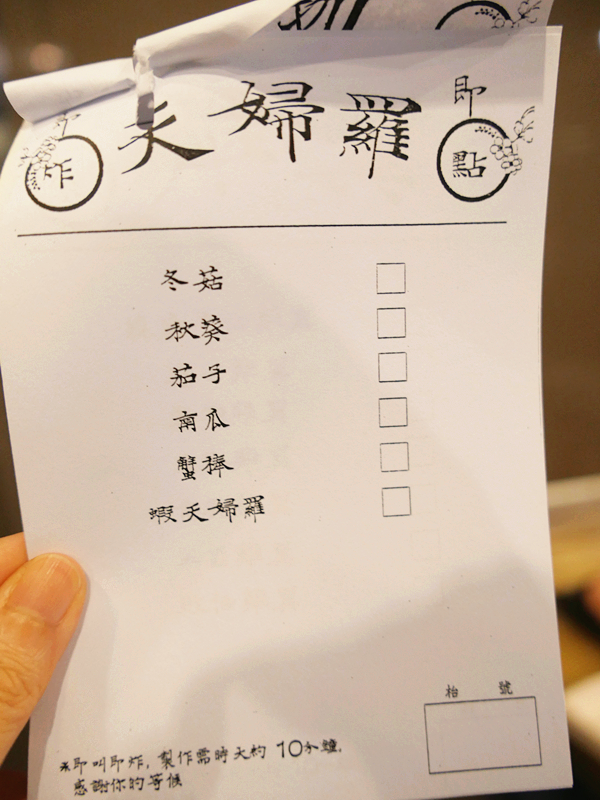 天婦羅
即
點
炸
冬菇
秋葵
茄子
南瓜
蟹棒
蝦天婦羅
枱 號
※即叫即炸，製作需時大約 10分鐘，
感謝你的等候